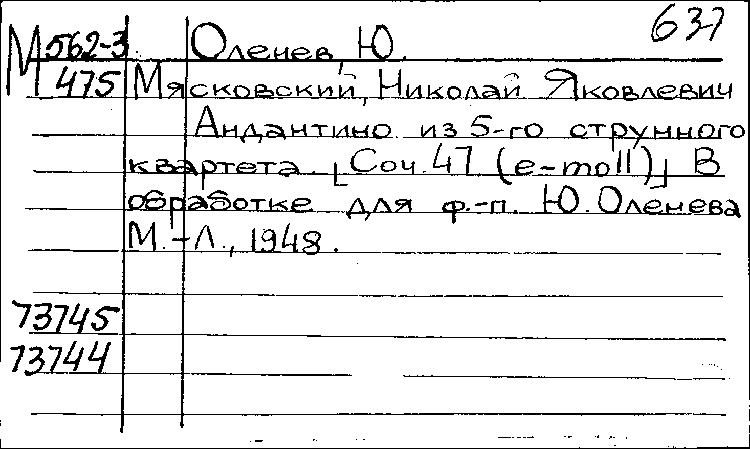 637
М 562-3 Оленев, Ю.
475 Мясковский, Николай Яковлевич
Андантино из 5-го струнного
квартета. [Соч. 47 (e-moll)] В
обработке для ф.-п. Ю. Оленева
М.-Л., 1948.
73745
73744